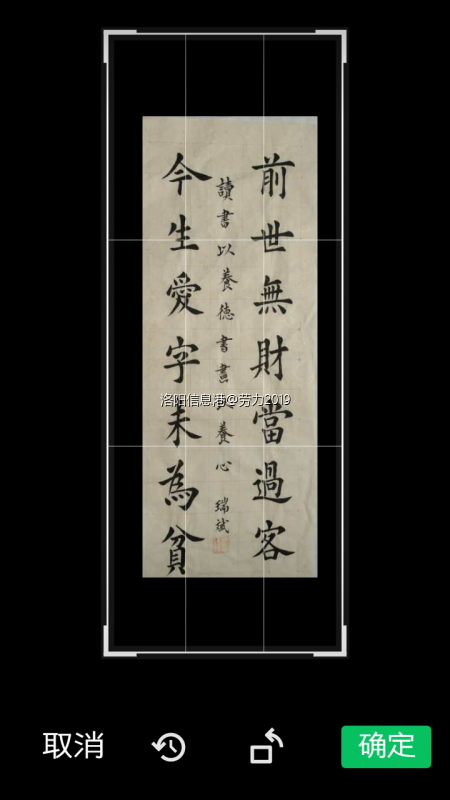 前世無財當過客
讀書以養德書畫
養心
瑞斌
今生愛字未為貧
洛阳信息港@劳力2019
取消
确定